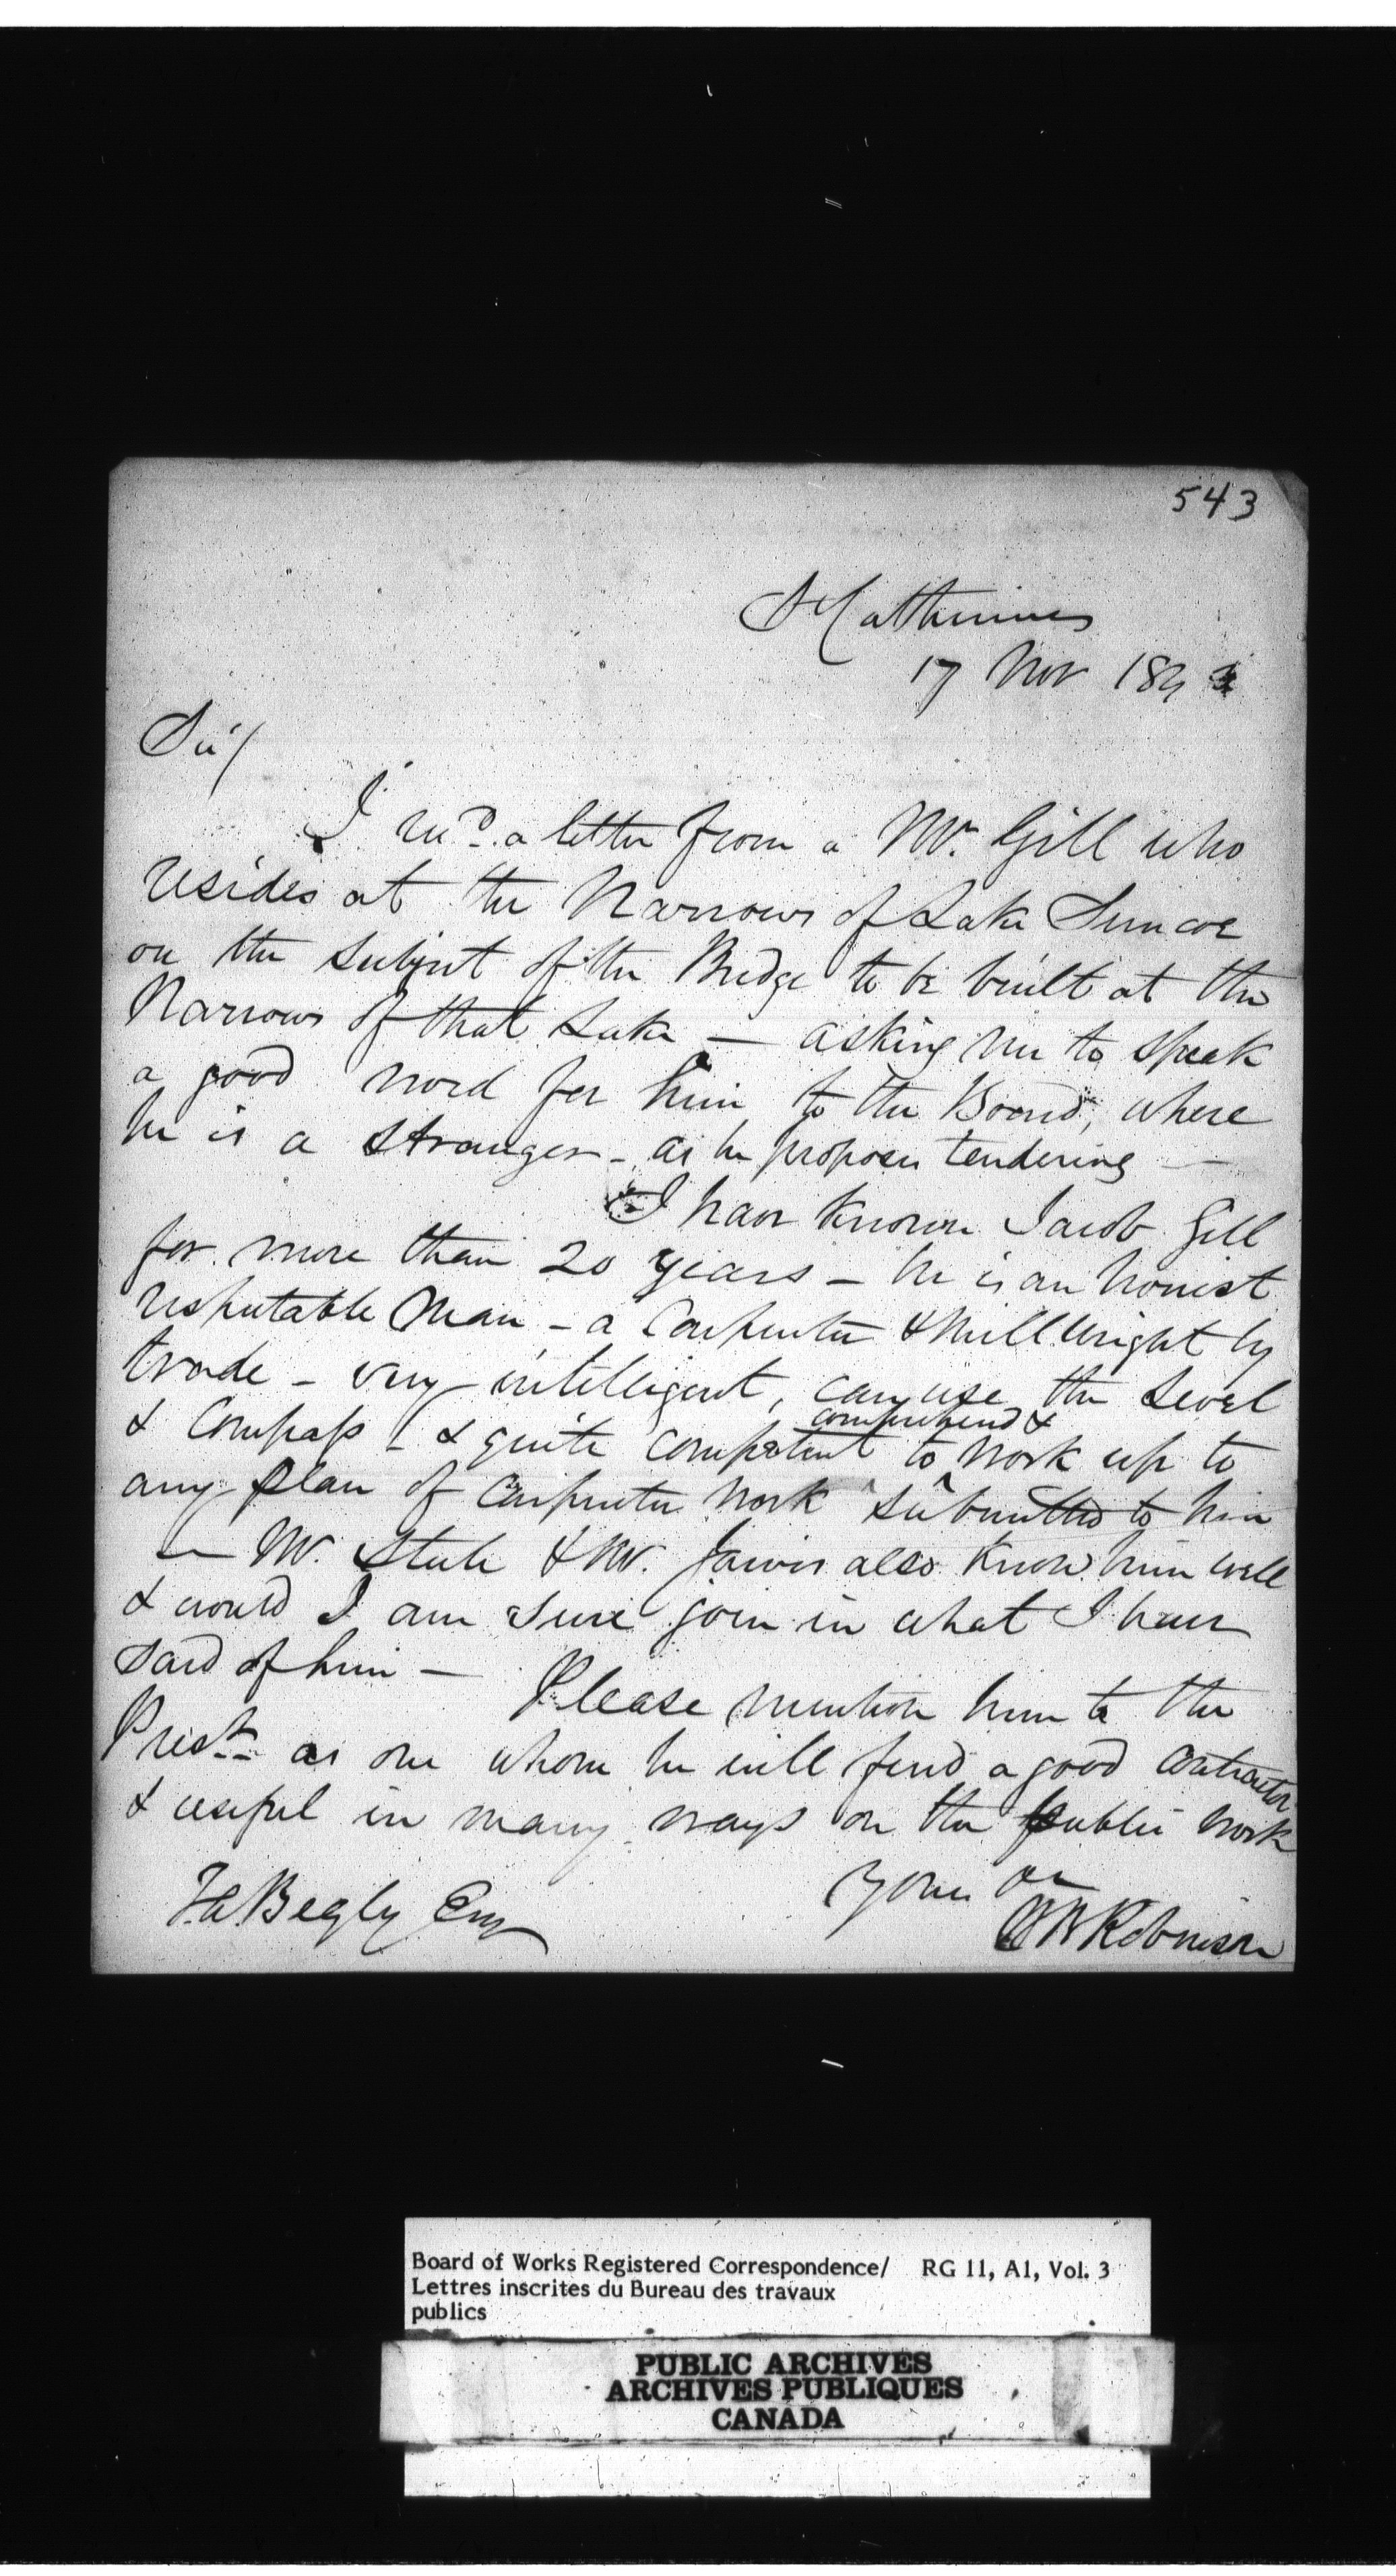 543
St Catherines
17 Nov 184
Sir/
I recd. a letter from a Mr. Gill who
resides at the Narrows of Lake Simcoe
on the subject of the Bridge to be built at the
Narrows of that Lake — asking me to speak
a good word for him to the Board, where
he is a stranger - as he proposes tendering —
I have known Jacob Gill
for more than 20 years - he is an honest
reputable man - a Carpenter & Millwright by
trade - very intelligent, can use the Level
& Compass - & quite competent to comprehend & work up to
any plan of Carpenter work submitted to him
— Mr. Steele & Mr. Jarvis also know him well
& would I am sure join in what I have
said of him — Please mention him to the
Prest. as one whom he will find a good contractor
& useful in many ways on the public work
Yours &c
T.A. Begly Esq
W B Robinson
Board of Works Registered Correspondence/ RG 11, A1, Vol. 3
Lettres inscrites du Bureau des travaux
publics
PUBLIC ARCHIVES
ARCHIVES PUBLIQUES
CANADA